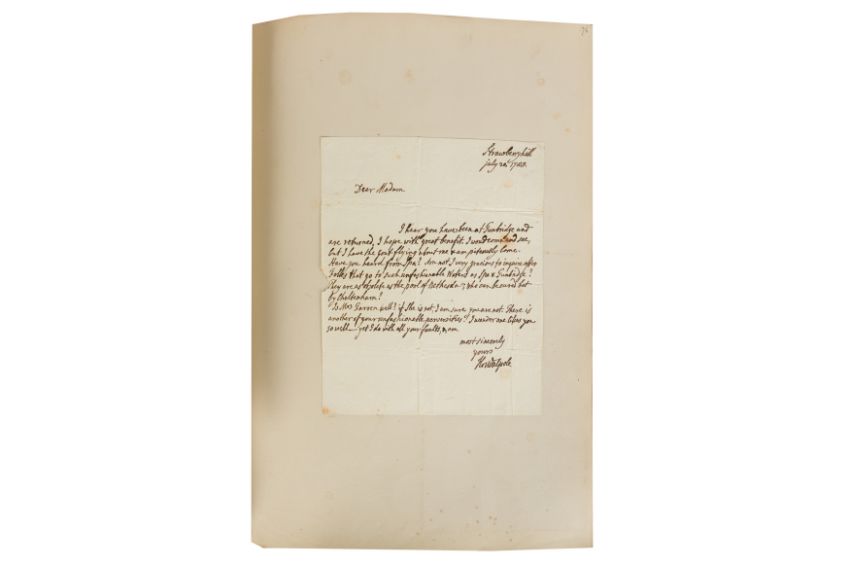 76
Strawberryhill
july 20th 1788.
Dear Madam
I hear you have been at Tunbridge and
are returned, I hope with great benefit. I would come and see,
but I have the gout flying about me & am piteously lame.
Have you heard from Spa? Am not I very gracious to inquire after
Folks that go to such unfashionable Waters as Spa & Tunbridge?
They are as obsolete as the pool of Bethesda; who can be cured but
by Cheltenham?
Is Mrs Garrick well? if She is not, I am sure you are not. There is
another of your unfashionable perversities! I wonder one likes you
so well — yet I do with all your faults, & am
most sincerely
yours
Hor Walpole